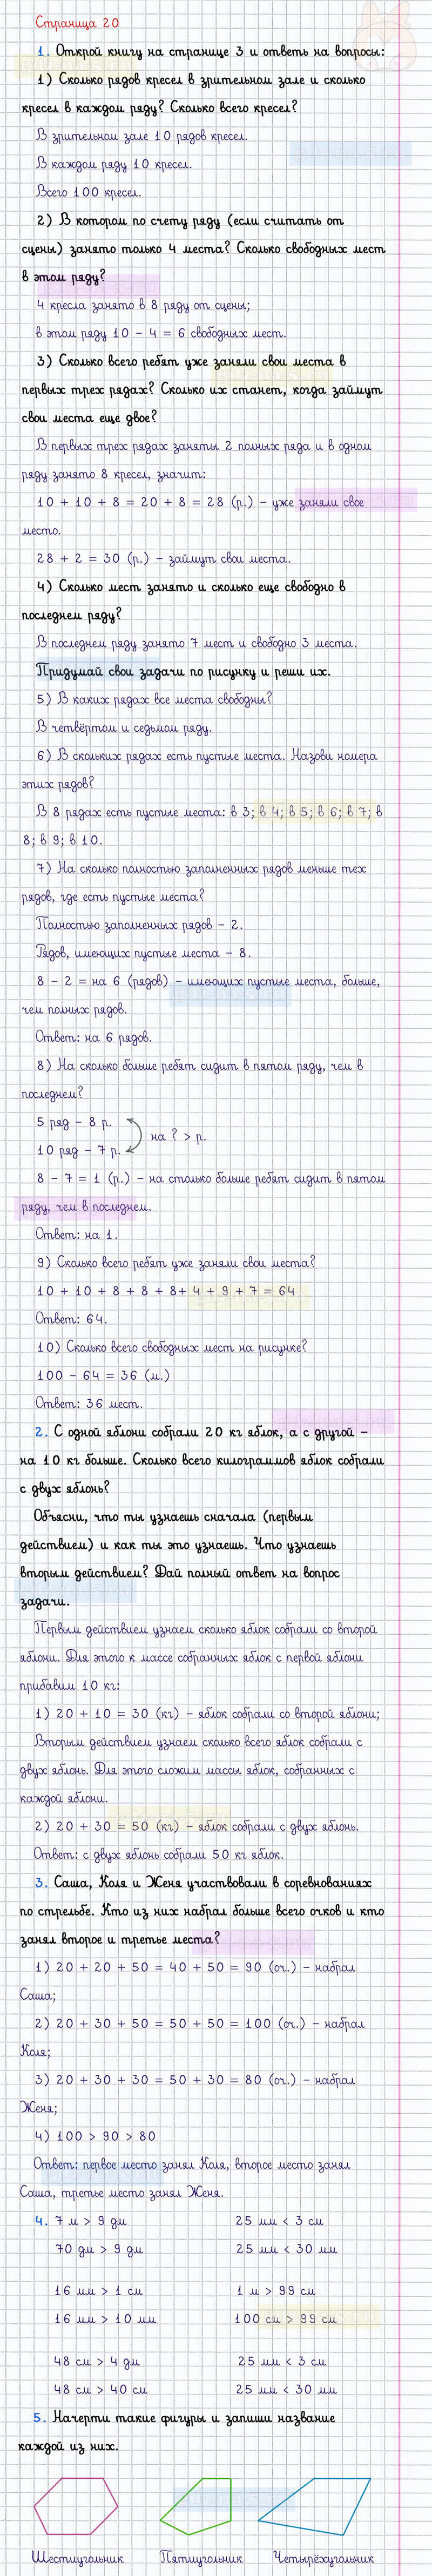 Страница 20
1. Открой книгу на странице 3 и ответь на вопросы:
1) Сколько рядов кресел в зрительном зале и сколько
кресел в каждом ряду? Сколько всего кресел?
В зрительном зале 10 рядов кресел.
В каждом ряду 10 кресел.
Всего 100 кресел.
2) В котором по счету ряду (если считать от
сцены) занято только 4 места? Сколько свободных мест
в этом ряду?
4 кресла занято в 8 ряду от сцены;
в этом ряду 10 – 4 = 6 свободных мест.
3) Сколько всего ребят уже заняли свои места в
первых трех рядах? Сколько их станет, когда займут
свои места еще двое?
В первых трех рядах заняты 2 полных ряда и в одном
ряду занято 8 кресел, значит:
10 + 10 + 8 = 20 + 8 = 28 (р.) – уже заняли свое
место.
28 + 2 = 30 (р.) – займут свои места.
4) Сколько мест занято и сколько еще свободно в
последнем ряду?
В последнем ряду занято 7 мест и свободно 3 места.
Придумай свои задачи по рисунку и реши их.
5) В каких рядах все места свободны?
В четвёртом и седьмом ряду.
6) В скольких рядах есть пустые места. Назови номера
этих рядов?
В 8 рядах есть пустые места: в 3; в 4; в 5; в 6; в 7; в
8; в 9; в 10.
7) На сколько полностью заполненных рядов меньше тех
рядов, где есть пустые места?
Полностью заполненных рядов – 2.
Рядов, имеющих пустые места – 8.
8 – 2 = на 6 (рядов) – имеющих пустые места, больше,
чем полных рядов.
Ответ: на 6 рядов.
8) На сколько больше ребят сидит в пятом ряду, чем в
последнем?
5 ряд – 8 р.
на ? > р.
10 ряд – 7 р.
8 – 7 = 1 (р.) – на столько больше ребят сидит в пятом
ряду, чем в последнем.
Ответ: на 1.
9) Сколько всего ребят уже заняли свои места?
10 + 10 + 8 + 8 + 8+ 4 + 9 + 7 = 64
Ответ: 64.
10) Сколько всего свободных мест на рисунке?
100 – 64 = 36 (м.)
Ответ: 36 мест.
2. С одной яблони собрали 20 кг яблок, а с другой –
на 10 кг больше. Сколько всего килограммов яблок собрали
с двух яблонь?
Объясни, что ты узнаешь сначала (первым
действием) и как ты это узнаешь. Что узнаешь
вторым действием? Дай полный ответ на вопрос
задачи.
Первым действием узнаем сколько яблок собрали со второй
яблони. Для этого к массе собранных яблок с первой яблони
прибавим 10 кг:
1) 20 + 10 = 30 (кг) – яблок собрали со второй яблони;
Вторым действием узнаем сколько всего яблок собрали с
двух яблонь. Для этого сложим массы яблок, собранных с
каждой яблони.
2) 20 + 30 = 50 (кг) – яблок собрали с двух яблонь.
Ответ: с двух яблонь собрали 50 кг яблок.
3. Саша, Коля и Женя участвовали в соревнованиях
по стрельбе. Кто из них набрал больше всего очков и кто
занял второе и третье места?
1) 20 + 20 + 50 = 40 + 50 = 90 (оч.) – набрал
Саша;
2) 20 + 30 + 50 = 50 + 50 = 100 (оч.) – набрал
Коля;
3) 20 + 30 + 30 = 50 + 30 = 80 (оч.) – набрал
Женя;
4) 100 > 90 > 80
Ответ: первое место занял Коля, второе место занял
Саша, третье место занял Женя.
4. 7 м > 9 дм 25 мм < 3 см
70 дм > 9 дм 25 мм < 30 мм
16 мм > 1 см 1 м > 99 см
16 мм > 10 мм 100 см > 99 см
48 см > 4 дм 25 мм < 3 см
48 см > 40 см 25 мм < 30 мм
5. Начерти такие фигуры и запиши название
каждой из них.
Шестиугольник Пятиугольник Четырёхугольник